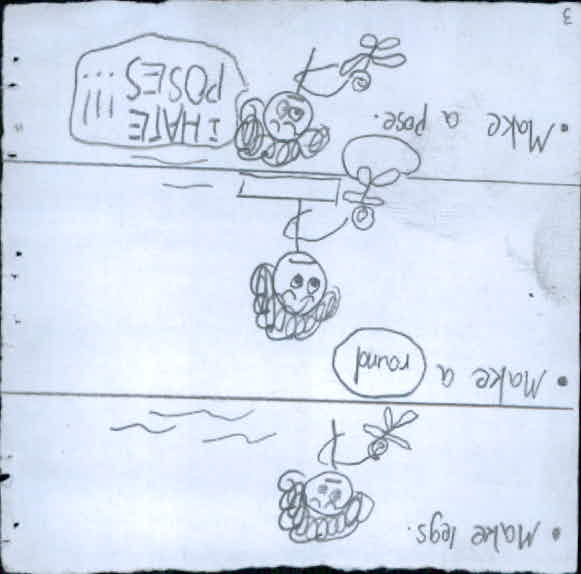 • Make legs.
• Make a round
• Make a pose.
I HATE
POSES!!!
3